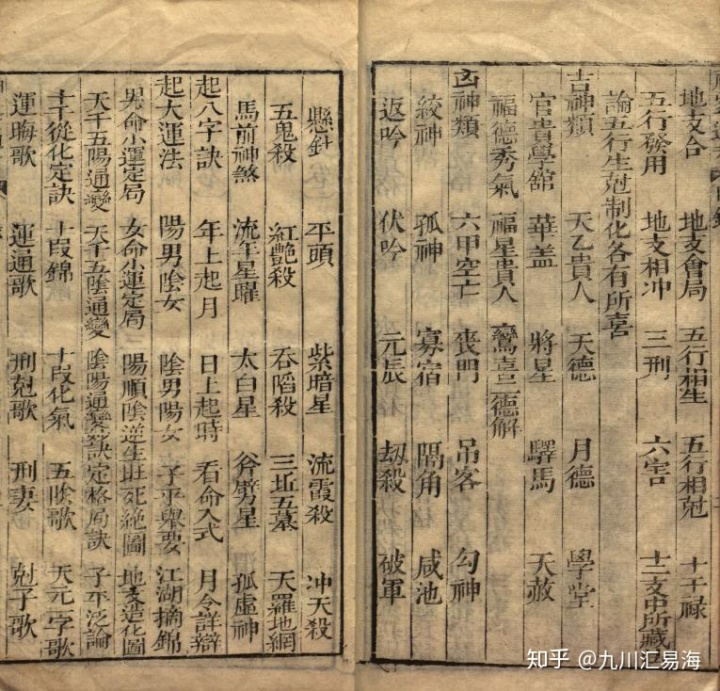 地支合 地支會局 五行相生 五行相尅 十干祿
五行發用 地支相冲 三刑 六害 十二支中所藏
論五行生尅制化各有所喜
吉神類 天乙貴人 天德 月德 學堂
官貴學舘 華盖 將星 驛馬 天赦
福德秀氣 福星貴人 鸞喜二德解
凶神類 六甲空亡 喪門 吊客 勾神
絞神 孤神 寡宿 隔角 咸池
返吟 伏吟 元辰 劫殺 破軍
懸針 平頭 紫暗星 流霞殺 冲天殺
五鬼殺 紅艷殺 吞啗殺 三坵五墓 天羅地網
馬前神煞 流年星曜 太白星 斧劈星 孤虛神
起八字訣 年上起月 日上起時 看命入式 月令詳辯
起大運法 陽男陰女 陰男陽女 子平舉要 江湖摘錦
男命小運定局 女命小運定局 陽順陰逆生旺死絕圖 地支造化圖
天干五陽通變 天干五陰通變 陰陽通變訣 定格局訣 子平泛論
十干從化定訣 十段錦 十段化氣 五陰歌 天元一字歌
運晦歌 運通歌 刑尅歌 刑妻歌 尅子歌
知乎 @九川汇易海